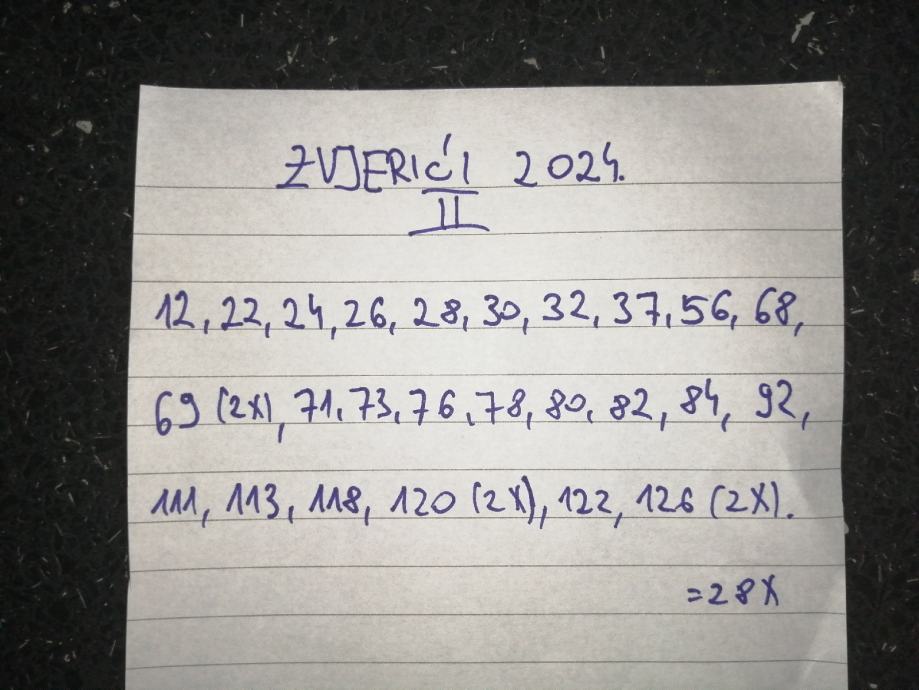 ZVJERIĆI 2024.
II
12, 22, 24, 26, 28, 30, 32, 37, 56, 68,
69 (2X), 71, 73, 76, 78, 80, 82, 84, 92,
111, 113, 118, 120 (2X), 122, 126 (2X).
=28X